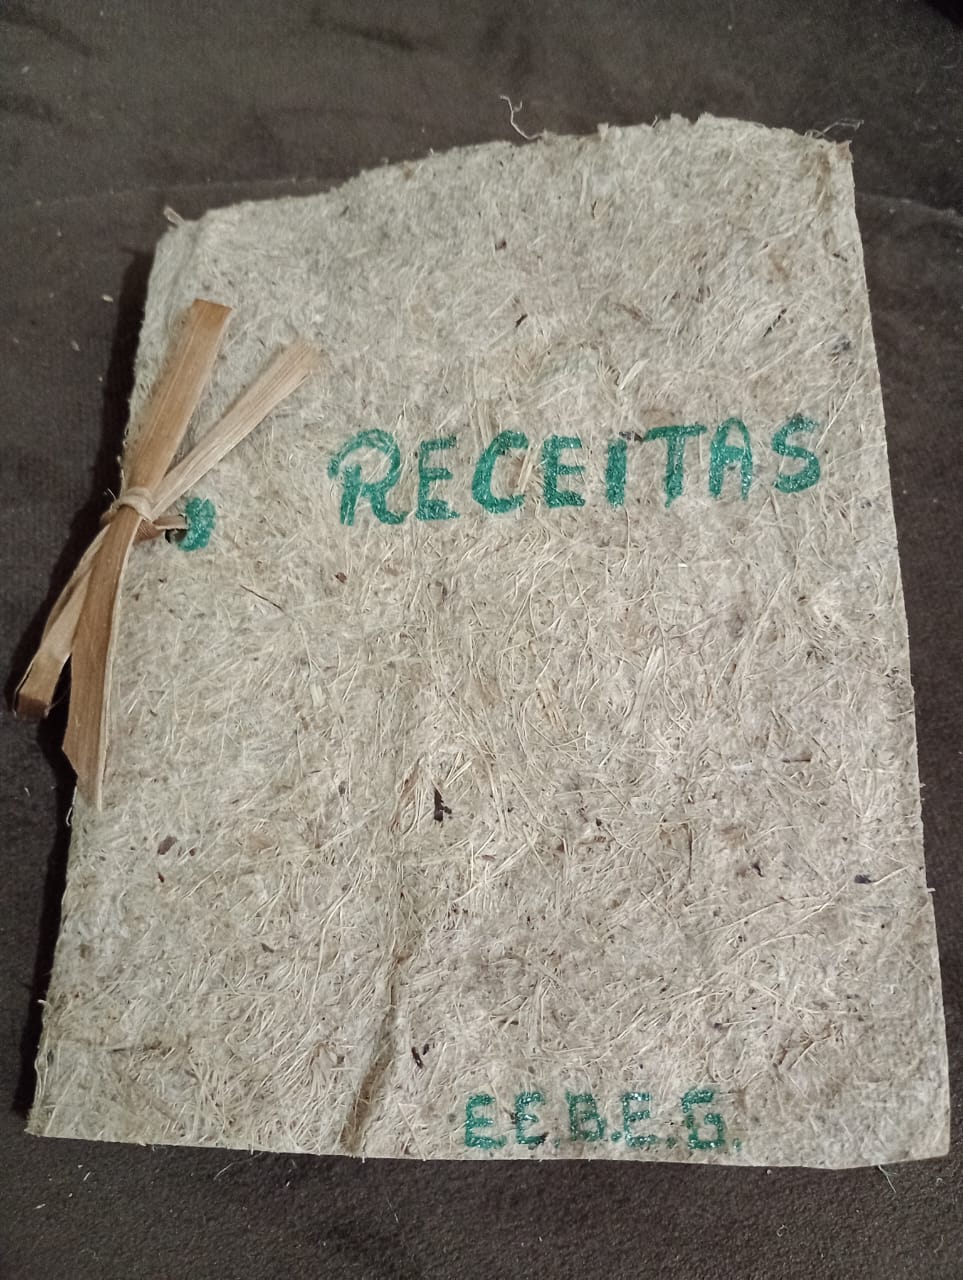 RECEITAS
E.E.B.E.G.